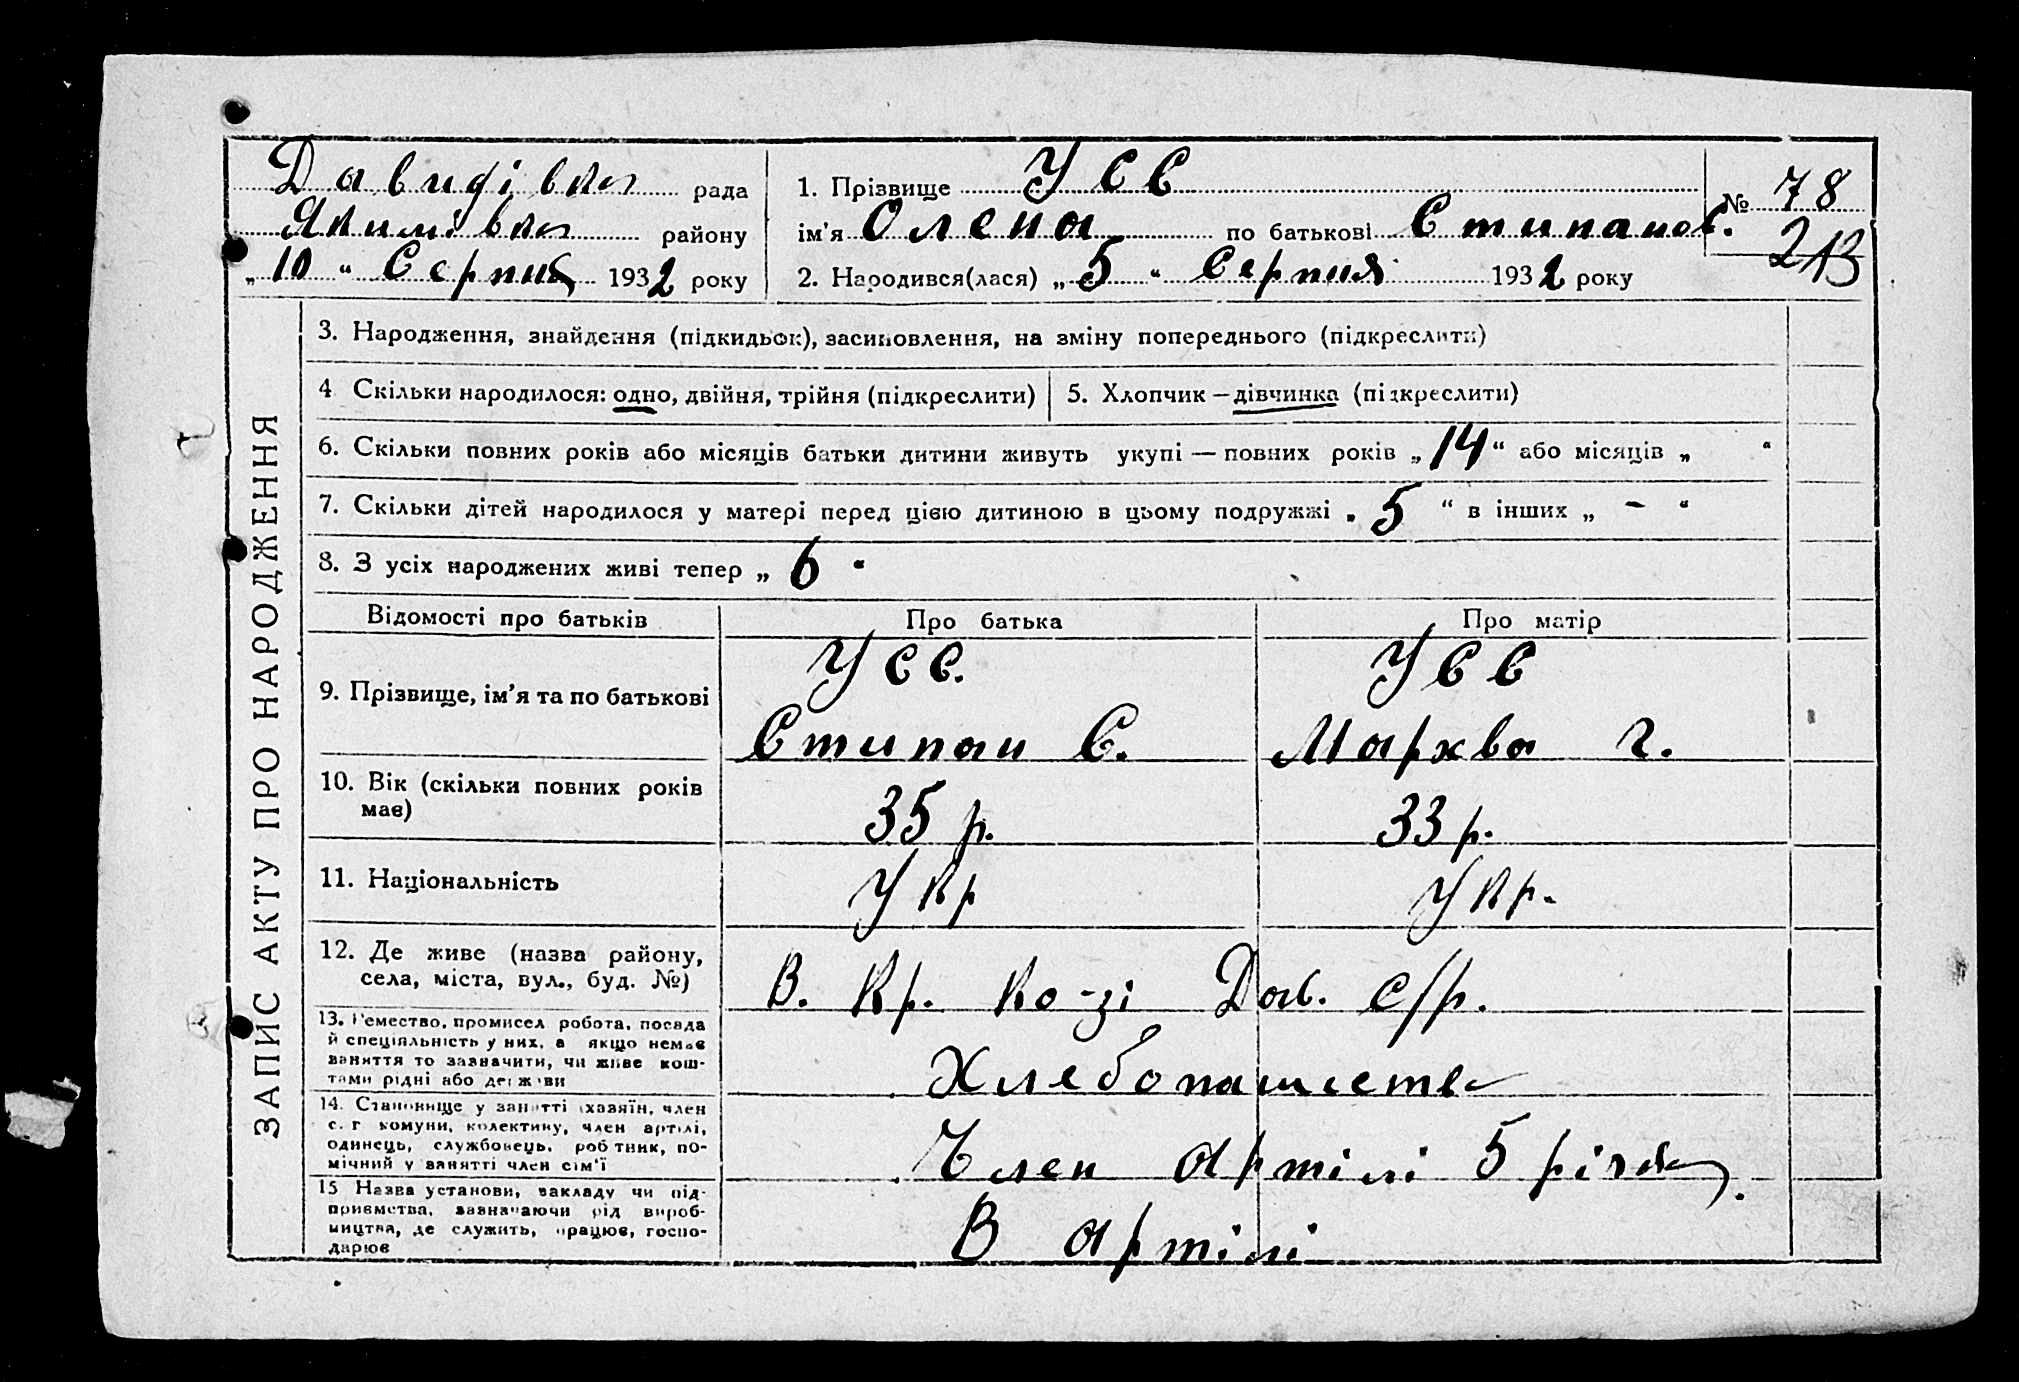 Давидівка рада
Якимівка району
„10“ Серпня 1932 року
1. Прізвище Усс
ім'я Олена по батькові Стипанов.
2. Народився(лася) „5“ Серпня 1932 року
№ 78
213
ЗАПИС АКТУ ПРО НАРОДЖЕННЯ
3. Народження, знайдення (підкидьок), засиновлення, на зміну попереднього (підкреслити)
4 Скільки народилося: одно, двійня, трійня (підкреслити)
5. Хлопчик – дівчинка (підкреслити)
6. Скільки повних років або місяців батьки дитини живуть укупі — повних років „14“ або місяців „ “
7. Скільки дітей народилося у матері перед цією дитиною в цьому подружжі „5“ в інших „ – “
8. З усіх народжених живі тепер „6“
Відомості про батьків Про батька Про матір
9. Прізвище, ім'я та по батькові
Усс. Усс
Стипан С. Мархва Г.
10. Вік (скільки повних років
має)
35 р. 33 р.
11. Національність Укр Укр.
12. Де живе (назва району,
села, міста, вул., буд. №)
В. Кр. Ко-зі Дав. с/р.
13. Ремество, промисел робота, посада
й спеціяльність у них, а якщо немає
заняття то зазначити, чи живе кош-
тами рідні або держави
Хлебопашеств
14. Становище у занятті хазяїн, член
с. г комуни, колективу, член артілі,
одинець, службовець, робтник, по-
мічний у занятті член сім'ї
Член артілі 5 різдк.
15 Назва установи, закладу чи під-
приємства, зазначаючи рід вироб-
ництва, де служить, працює, госпо-
дарює
В артілі